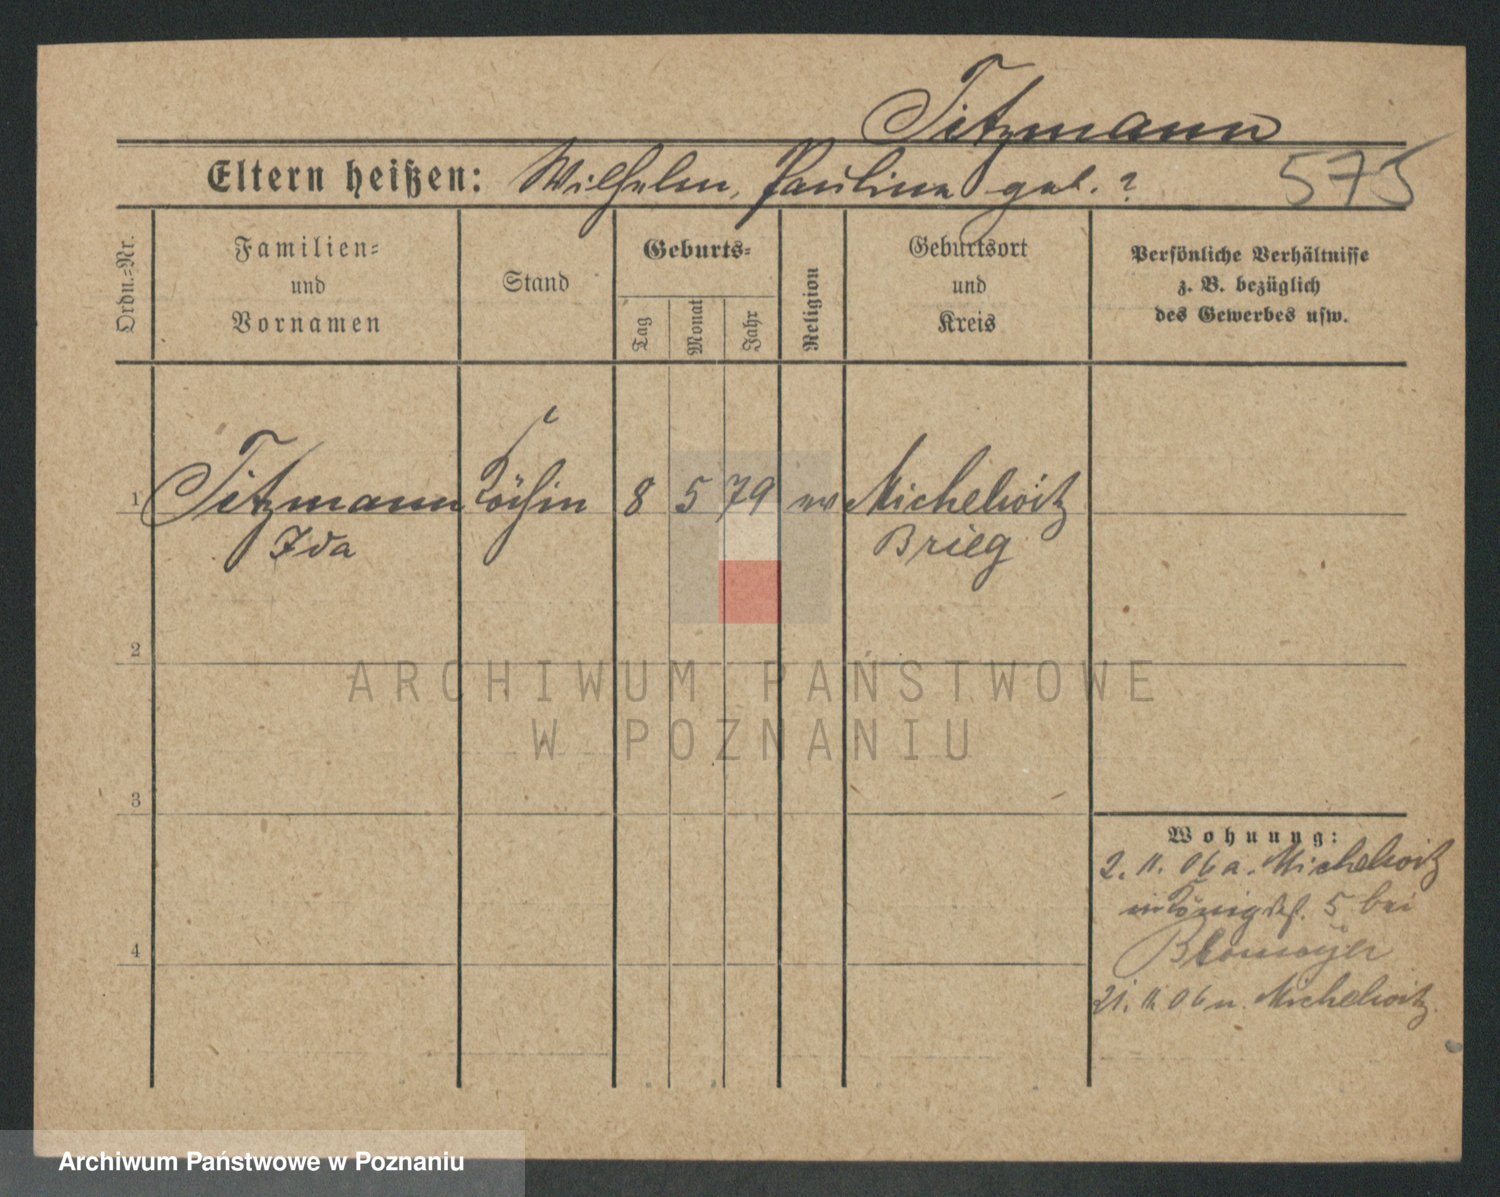 Titzmann
Eltern heißen: Wilhelm, Paulina geb. ?
575
Ordn.=Nr.
Familien=
und
Vornamen
Stand
Geburts=
Tag
Monat
Jahr
Religion
Geburtsort
und
Kreis
Persönliche Verhältnisse
z. B. bezüglich
des Gewerbes usw.
1 Titzmann Köchin 8 5 79 ev Michelwitz
Ida Brieg
2
ARCHIWUM PAŃSTWOWE
W POZNANIU
3
Wohnung:
2. 11. 06 a. Michelwitz
Königstr. 5 bei
4
21. 11. 06 n. Michelwitz
Archiwum Państwowe w Poznaniu